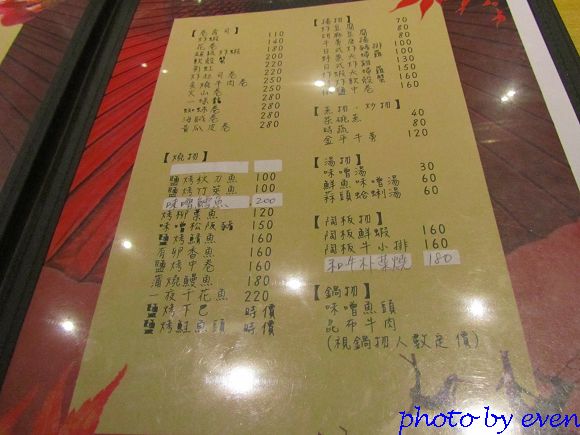 【卷壽司】
炸蝦 110
花卷 140
180
軟殼蟹 200
彩虹 220
炸起司卷 220
炙燒牛肉卷 250
火山卷 250
一味鰻 280
蜘蛛卷 280
海鹹卷 280
黃瓜皮卷 280
【燒物】
鹽烤秋刀魚 100
鹽烤竹莢魚 100
味噌鱈魚 200
烤柳葉魚 120
味噌松阪豬 150
鹽烤鯖魚 160
有卵香魚 160
鹽烤中卷 160
蒲燒鰻魚 160
一夜干花魚 220
鹽烤下巴 時價
鹽烤鮭魚頭 時價
【揚物】
炸豆腐 70
80
80
100
100
130
150
160
160
【蒸物．炒物】
茶碗蒸 40
時蔬 80
金平牛蒡 120
【湯物】
味噌湯 30
鮮魚味噌湯 60
蒜頭蛤蜊湯 60
【陶板物】
陶板鮮蝦 160
陶板牛小排 160
和牛朴葉燒 180
【鍋物】
味噌魚頭
昆布牛肉
(視鍋物人數定價)
photo by even